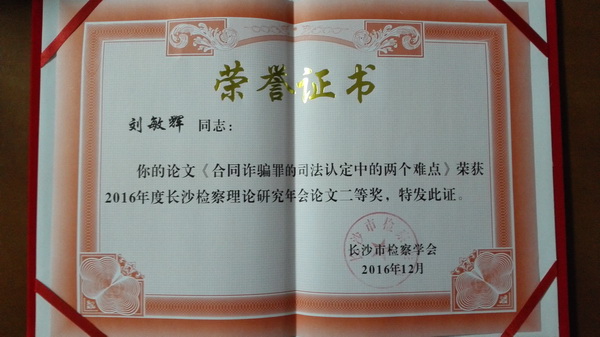 荣誉证书
刘敏辉 同志：
你的论文《合同诈骗罪的司法认定中的两个难点》荣获
2016年度长沙检察理论研究年会论文二等奖，特发此证。
长沙市检察学会
2016年12月